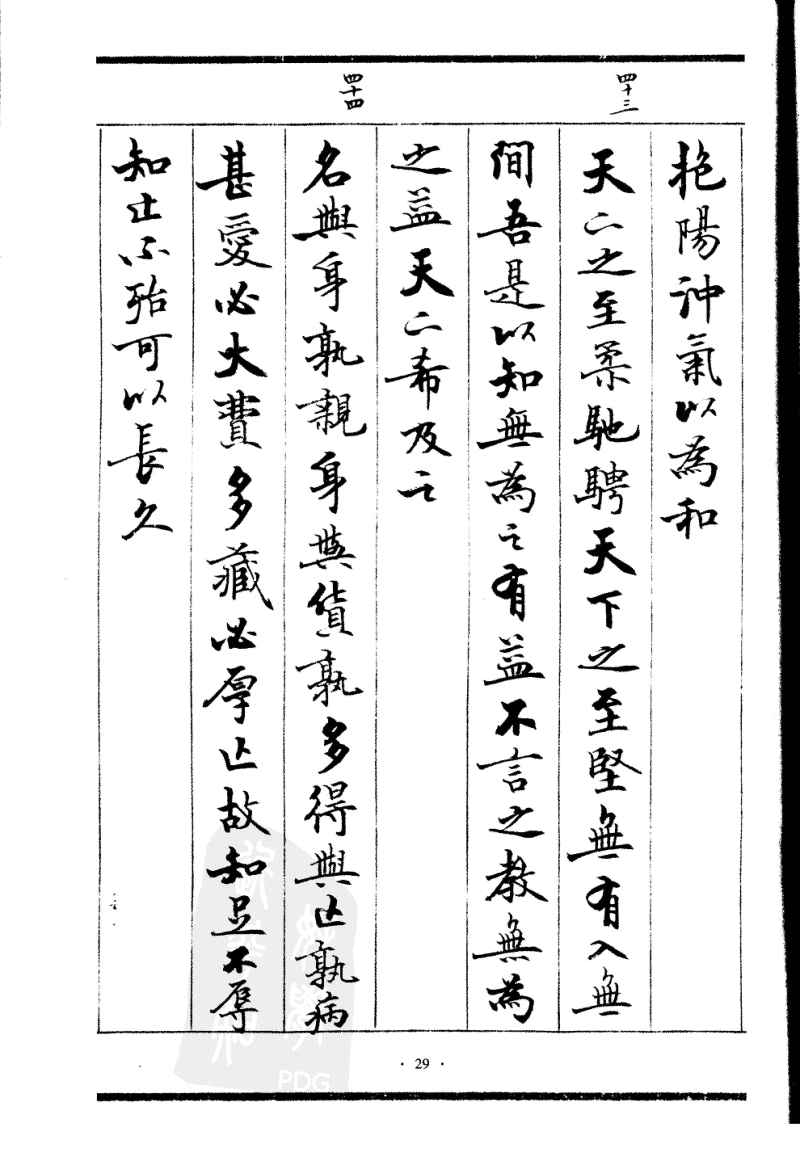 四十三
四十四
抱陽沖氣以為和
天下之至柔馳騁天下之至堅無有入無
間吾是以知無為之有益不言之教無為
之益天下希及之
名與身孰親身與貨孰多得與亡孰病
甚愛必大費多藏必厚亡故知足不辱
知止不殆可以長久
· 29 ·
PDG